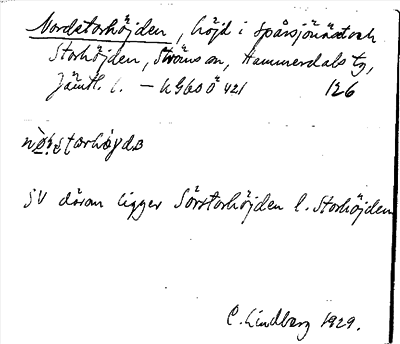 Nordstorhöjden, höjd i Spåssjönäset och
Storhöjden, Ströms sn, Hammerdals tg,
Jämtl. l. — kgbsÖ 421 126
SV därom ligger Sörstorhöjden l. Storhöjden
C. Lindberg 1929.